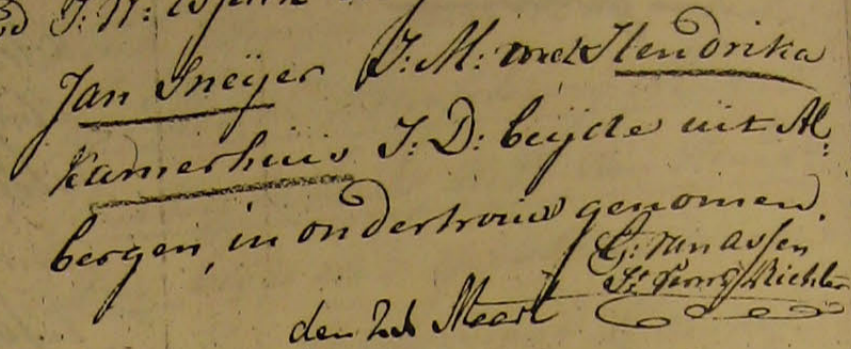 Jan Sneijer J: M: met Hendrika
Kamerhuis J: D: beijde uit Al:
bergen, in ondertrouw genomen.
G: van Assen
Richter
den Maart